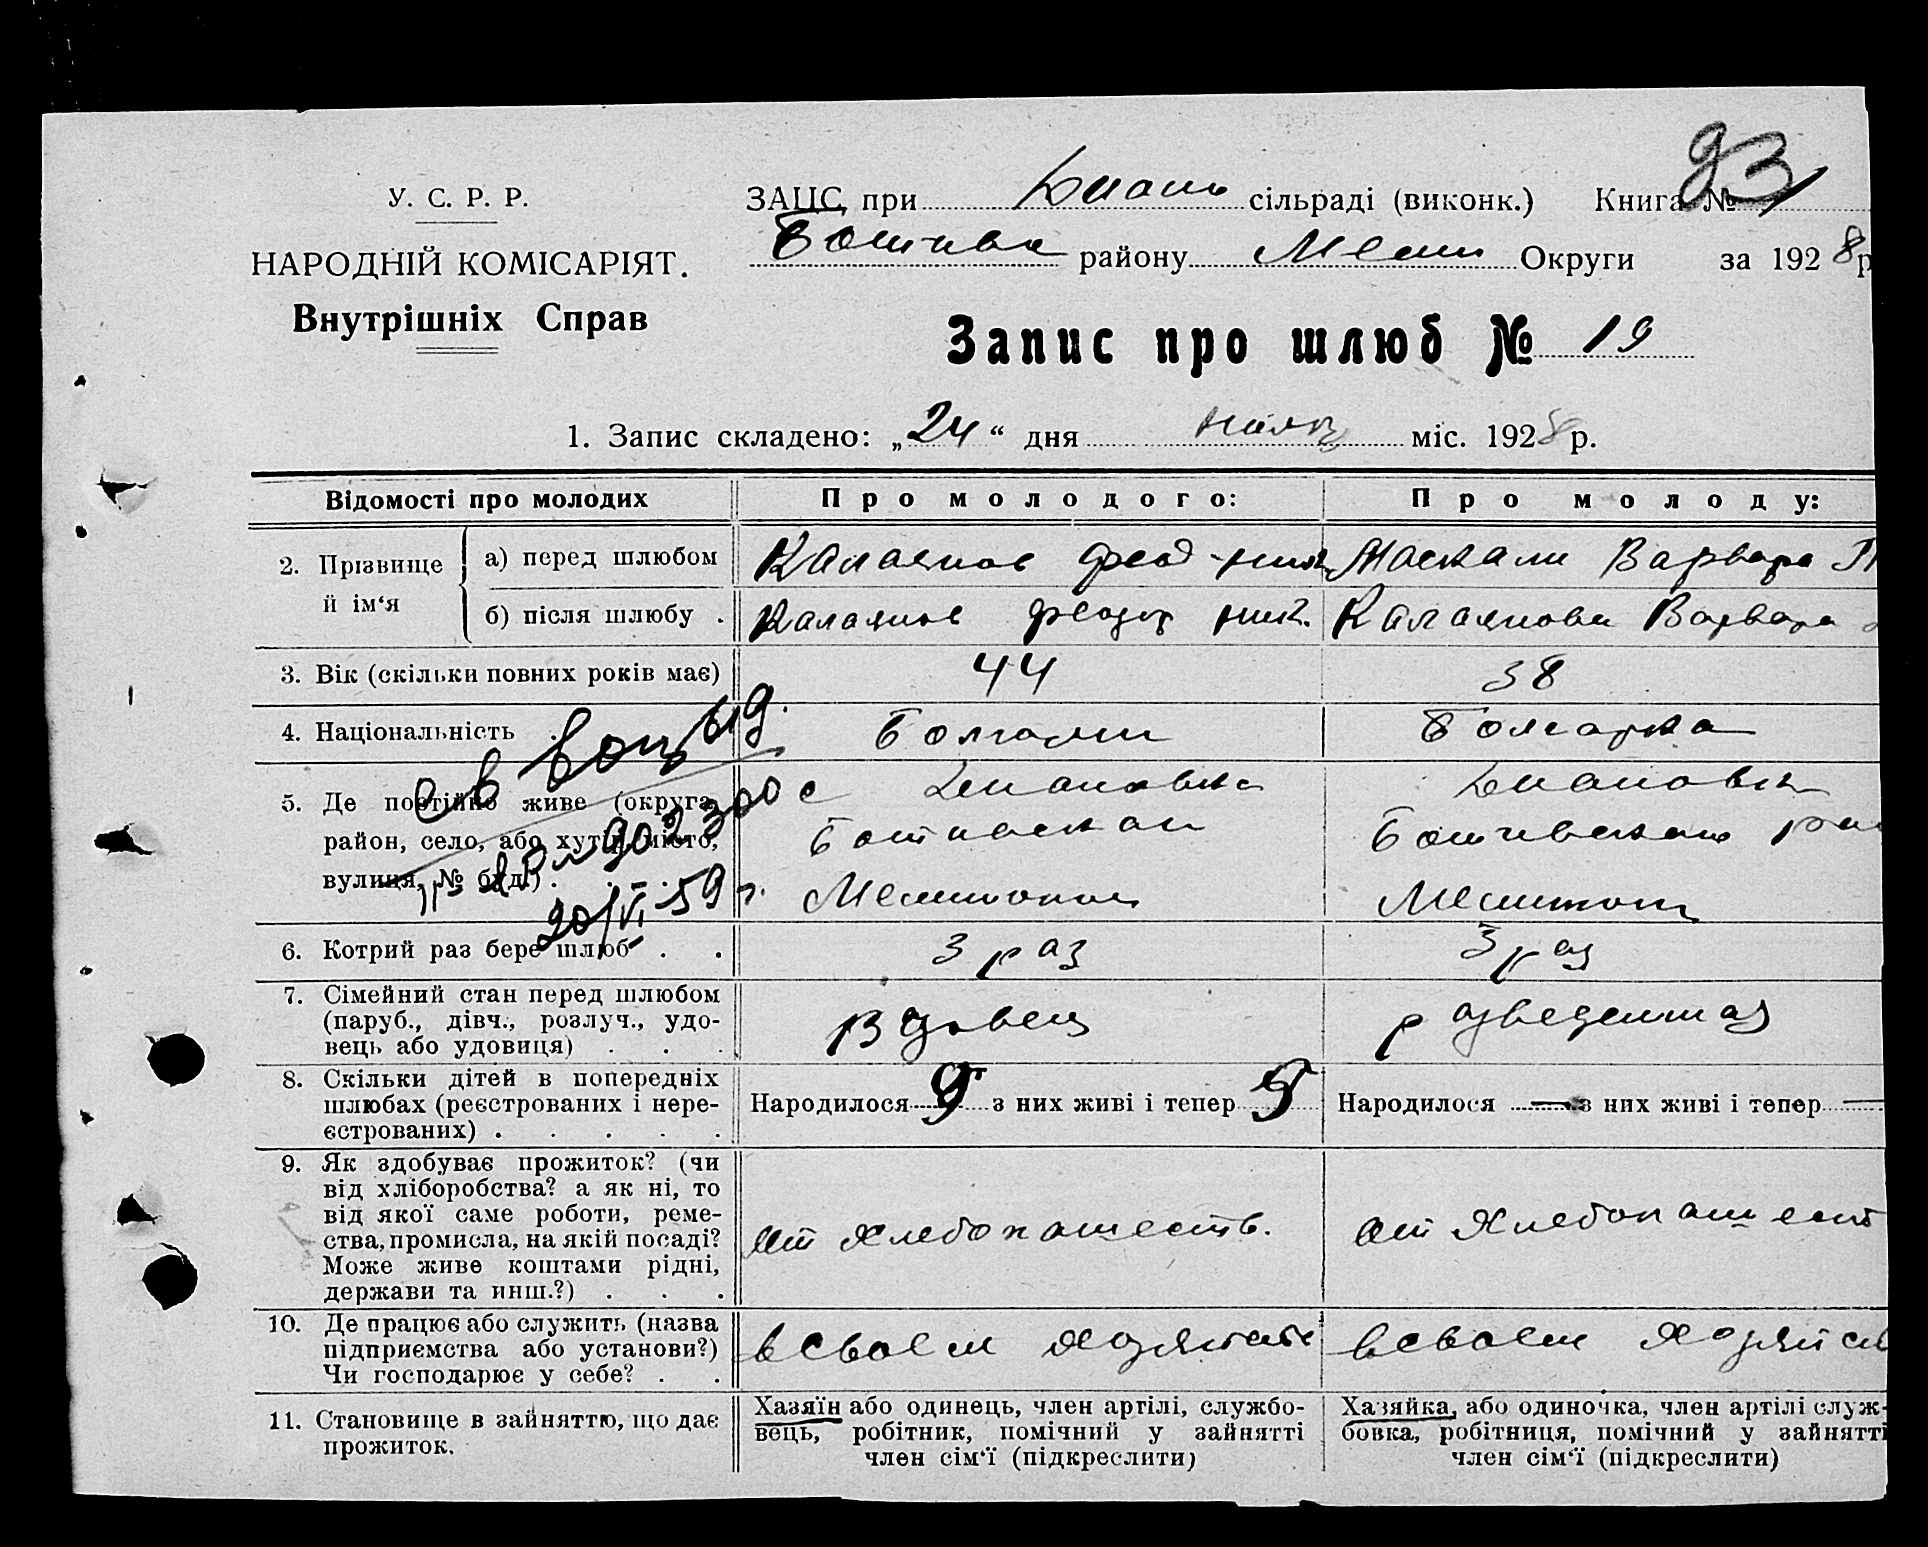 У. С. Р. Р.
НАРОДНІЙ КОМІСАРІЯТ.
Внутрішніх Справ
ЗАЦС при сільраді (виконк.) Книга № 93
району Округи за 1928 р
Запис про шлюб № 19
1. Запис складено: „24“ дня міс. 1928 р.
Відомості про молодих Про молодого: Про молоду:
2. Прізвище й ім‘я
а) перед шлюбом Калоянов Феод Варвара
б) після шлюбу . Калаянов Федор Ник. Калаянова Варвара
3. Вік (скільки повних років має) 44 38
4. Національність . Болгарин Болгарка
5. Де постійно живе (округа,
район, село, або хутір, місто,
вулиця, № буд.) .
с Диановка
Диановка
св выд.
902300
20/VI-59 г.
6. Котрий раз бере шлюб . . 3 раз 3 раз
7. Сімейний стан перед шлюбом
(паруб., дівч., розлуч., удо-
вець або удовиця) . . .
Вдовец разведенная
8. Скільки дітей в попередніх
шлюбах (реєстрованих і нере-
єстрованих) . . . . .
Народилося 9 з них живі і тепер 5 Народилося — з них живі і тепер —
9. Як здобуває прожиток? (чи
від хліборобства? а як ні, то
від якої саме роботи, реме-
ства, промисла, на якій посаді?
Може живе коштами рідні,
держави та инш.?) . . .
от Хлебопашеств. от Хлебопашест
10. Де працює або служить (назва
підприємства або установи?)
Чи господарює у себе? . .
в своем хозяйстве в своем хозяйств
11. Становище в зайняттю, що дає
прожиток.
Хазяїн або одинець, член артілі, службо-
вець, робітник, помічний у зайнятті
член сім‘ї (підкреслити)
Хазяйка, або одиночка, член артілі служ-
бовка, робітниця, помічний у зайнятті
член сім‘ї (підкреслити)